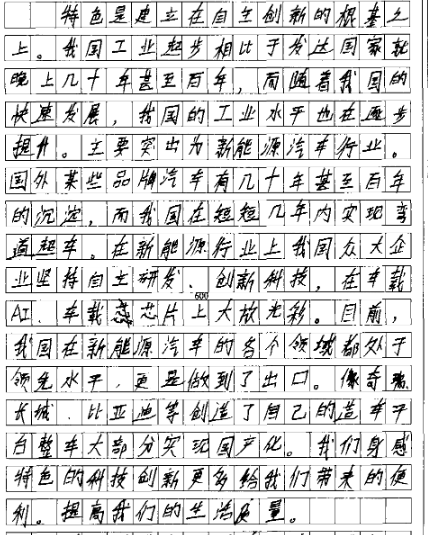 特色是建立在自主创新的根基之
上。我国工业起步相比于发达国家就
晚上几十年甚至百年，而随着我国的
快速发展，我国的工业水平也在逐步
提升。主要突出为新能源汽车行业。
国外某些品牌汽车有几十年甚至百年
的沉淀，而我国在短短几年内实现弯
道超车。在新能源行业上我国众大企
业坚持自主研发、创新科技，在车载
600
AI、车载芯片上大放光彩。目前，
我国在新能源汽车的各个领域都处于
领先水平，更是做到了出口。像奇瑞
长城、比亚迪等创造了自己的造车平
台整车大部分实现国产化。我们身感
特色的科技创新更多给我们带来的便
利。提高我们的生活质量。